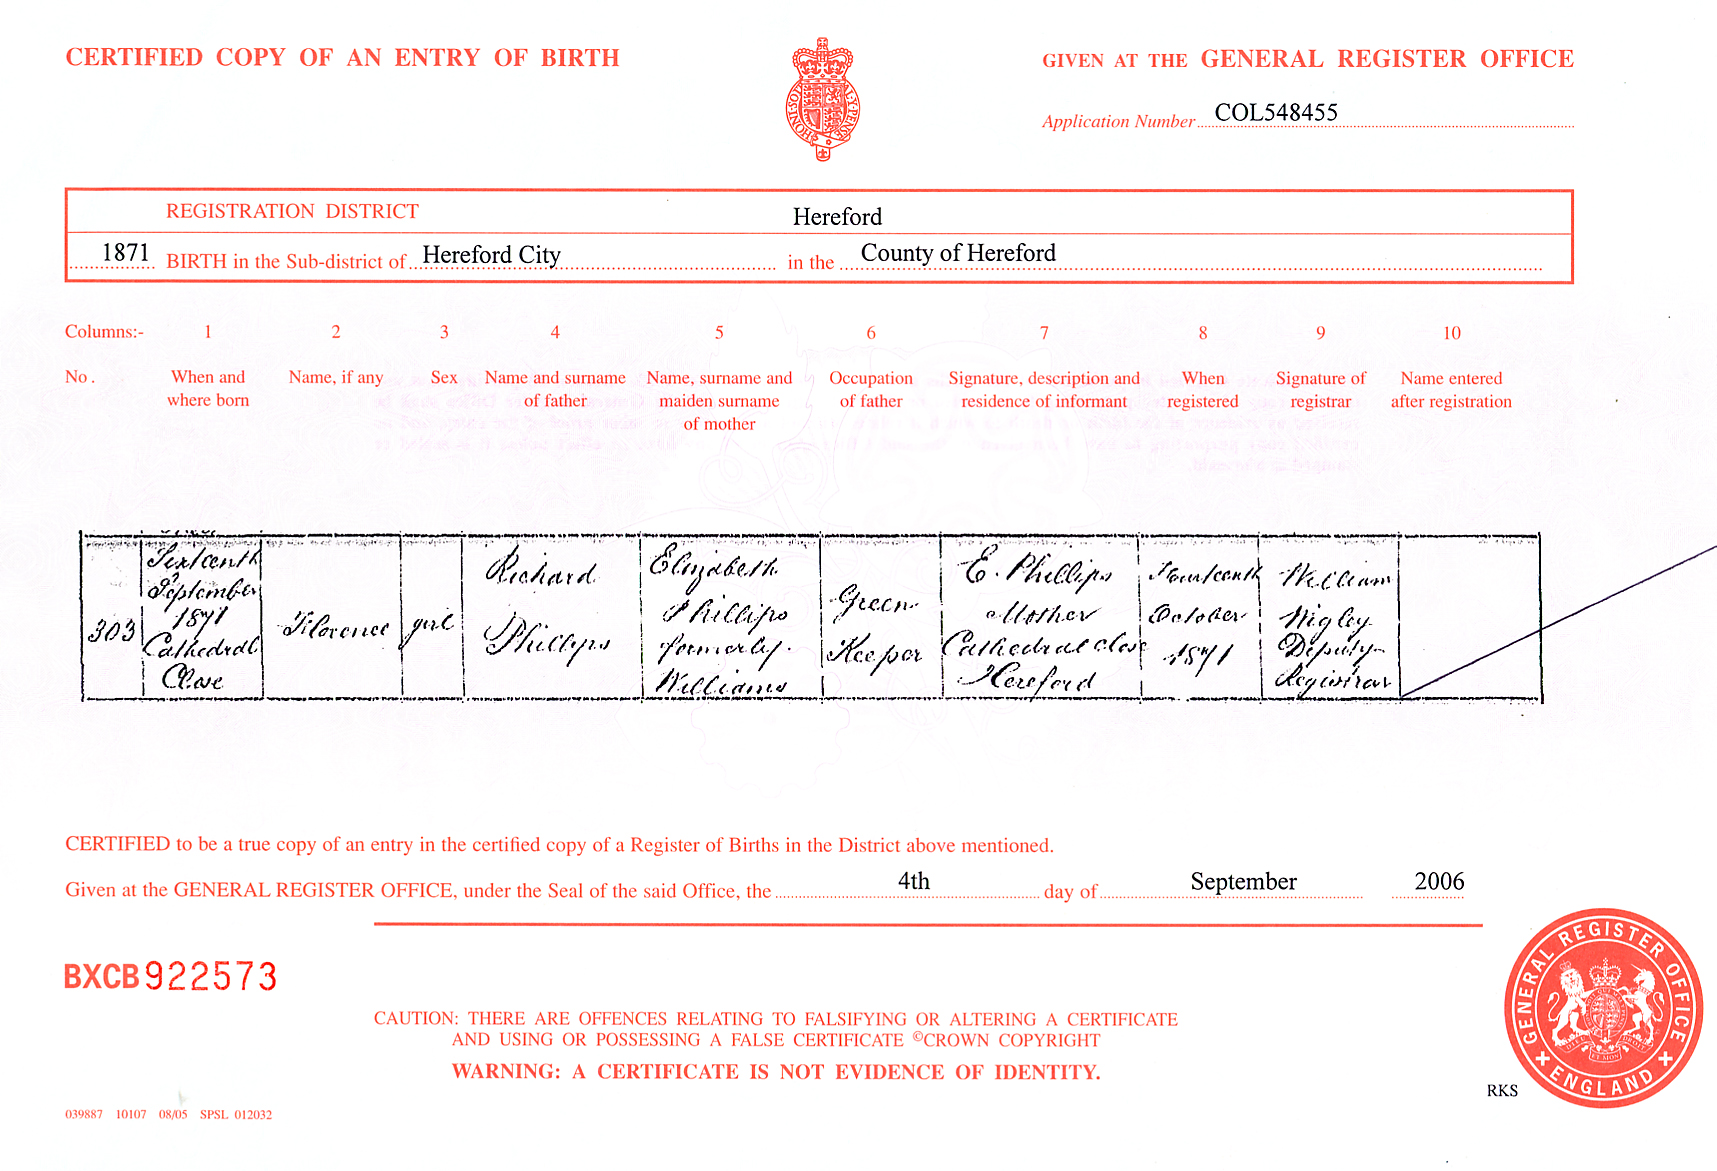 CERTIFIED COPY OF AN ENTRY OF BIRTH
GIVEN AT THE GENERAL REGISTER OFFICE
Application Number COL548455
REGISTRATION DISTRICT Hereford
1871 BIRTH in the Sub-district of Hereford City in the County of Hereford
Columns:- 1 2 3 4 5 6 7 8 9 10
No. When and where born
Name, if any
Sex
Name and surname of father
Name, surname and maiden surname of mother
Occupation of father
Signature, description and residence of informant
When registered
Signature of registrar
Name entered after registration
303
Sixteenth
September
1871
Cathedral
Close
Florence
girl
Richard
Phillips
Elizabeth
Phillips
formerly
Williams
Green
Keeper
E. Phillips
Mother
Cathedral Close
Hereford
Fourteenth
October
1871
William
Wigley
Deputy
Registrar
CERTIFIED to be a true copy of an entry in the certified copy of a Register of Births in the District above mentioned.
Given at the GENERAL REGISTER OFFICE, under the Seal of the said Office, the 4th day of September 2006
BXCB 922573
CAUTION: THERE ARE OFFENCES RELATING TO FALSIFYING OR ALTERING A CERTIFICATE
AND USING OR POSSESSING A FALSE CERTIFICATE ©CROWN COPYRIGHT
WARNING: A CERTIFICATE IS NOT EVIDENCE OF IDENTITY.
GENERAL REGISTER OFFICE
ENGLAND
RKS
039887 10107 08/05 SPSL 012032